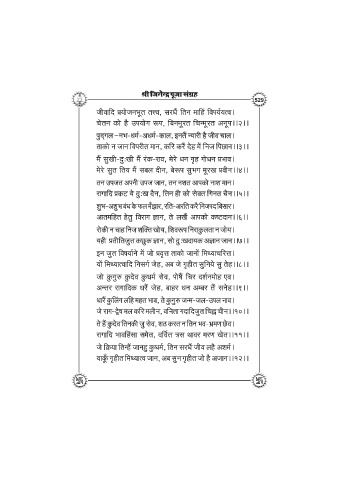 श्री जिनेन्द्र पूजा संग्रह
529
जीवादि प्रयोजनभूत तत्त्व, सरधैं तिन माहिं विपर्ययत्व।
चेतन को है उपयोग रूप, बिनमूरत चिन्मूरत अनूप।।२।।
पुद्गल-नभ-धर्म-अधर्म-काल, इनतैं न्यारी है जीव चाल।
ताको न जान विपरीत मान, करि करैं देह में निज पिछान।।३।।
मैं सुखी-दुःखी मैं रंक-राव, मेरे धन गृह गोधन प्रभाव।
मेरे सुत तिय मैं सबल दीन, बेरूप सुभग मूरख प्रवीन।।४।।
तन उपजत अपनी उपज जान, तन नशत आपको नाश मान।
रागादि प्रकट ये दुःख दैन, तिन ही को सेवत गिनत चैन।।५।।
शुभ-अशुभ बंध के फल मँझार, रति-अरति करै निजपद बिसार।
आतमहित हेतु विराग ज्ञान, ते लखैं आपको कष्टदान।।६।।
रोकी न चाह निज शक्ति खोय, शिवरूप निराकुलता न जोय।
याही प्रतीतिजुत कछुक ज्ञान, सो दुःखदायक अज्ञान जान।।७।।
इन जुत विषयनि में जो प्रवृत्त ताको जानों मिथ्याचरित्त।
यों मिथ्यात्वादि निसर्ग जेह, अब जे गृहीत सुनिये सु तेह।।८।।
जो कुगुरु कुदेव कुधर्म सेव, पोषैं चिर दर्शनमोह एव।
अन्तर रागादिक धरैं जेह, बाहर धन अम्बर तैं सनेह।।९।।
धारैं कुलिंग लहि महत भाव, ते कुगुरु जन्म-जल-उपल नाव।
जे राग-द्वेष मल करि मलीन, वनिता गदादिजुत चिह्न चीन।।१०।।
ते हैं कुदेव तिनकी जु सेव, शठ करत न तिन भव-भ्रमण छेव।
रागादि भावहिंसा समेत, दर्वित त्रस थावर मरण खेत।।११।।
जे क्रिया तिन्हैं जानहु कुधर्म, तिन सरधैं जीव लहै अशर्म।
याकूँ गृहीत मिथ्यात्व जान, अब सुन गृहीत जो है अजान।।१२।।